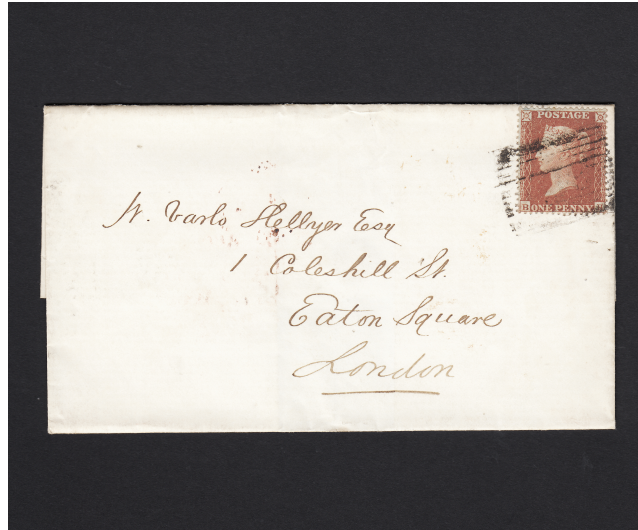 POSTAGE
ONE PENNY
W. Varlo Hellyer Esq
1 Coleshill St.
Eaton Square
London